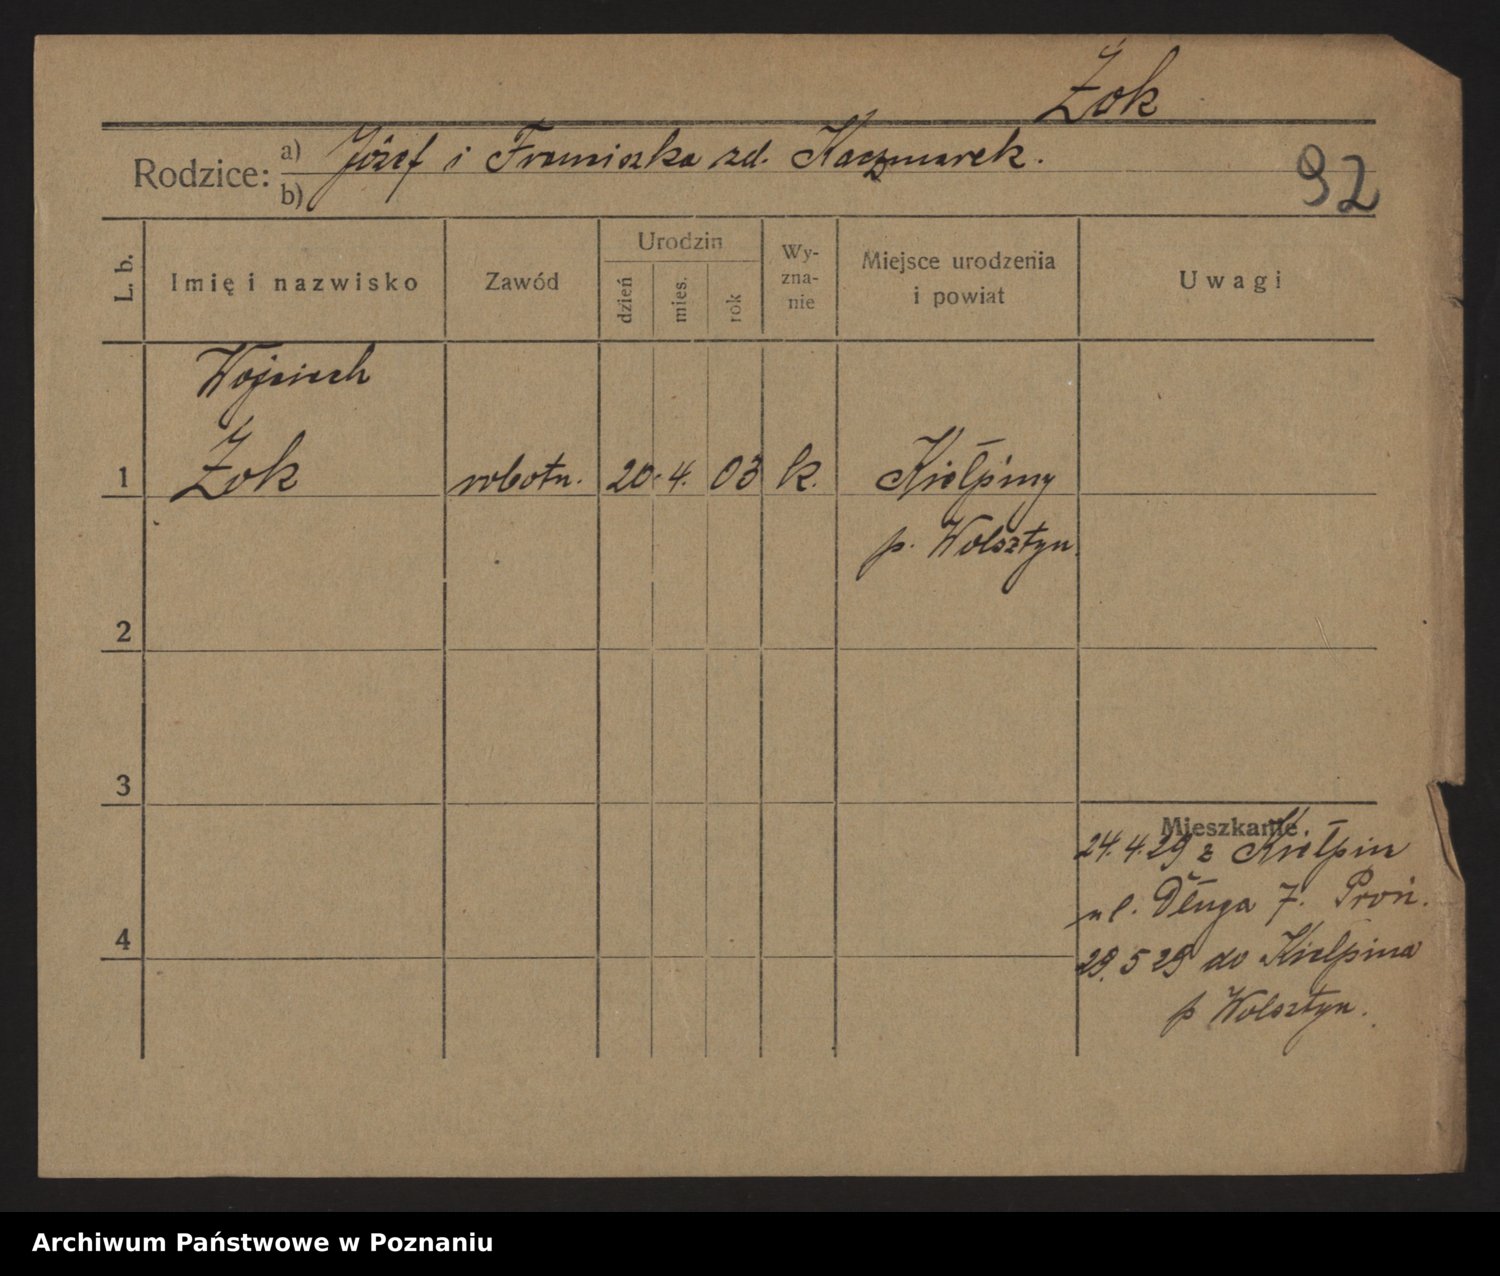 Żok
Rodzice: a) Józef i Franciszka zd. Kaczmarek.
b)
92
L. b.
Imię i nazwisko
Zawód
Urodzin
dzień
mies.
rok
Wy-
zna-
nie
Miejsce urodzenia
i powiat
Uwagi
Wojciech
1 Żok robotn. 20. 4. 03 k. Kiełpiny
p. Wolsztyn.
2
3
Mieszkanie.
24.4.29 z Kiełpin
ul. Długa 7.
4
29.5 29 do Kiełpina
p Wolsztyn.
Archiwum Państwowe w Poznaniu